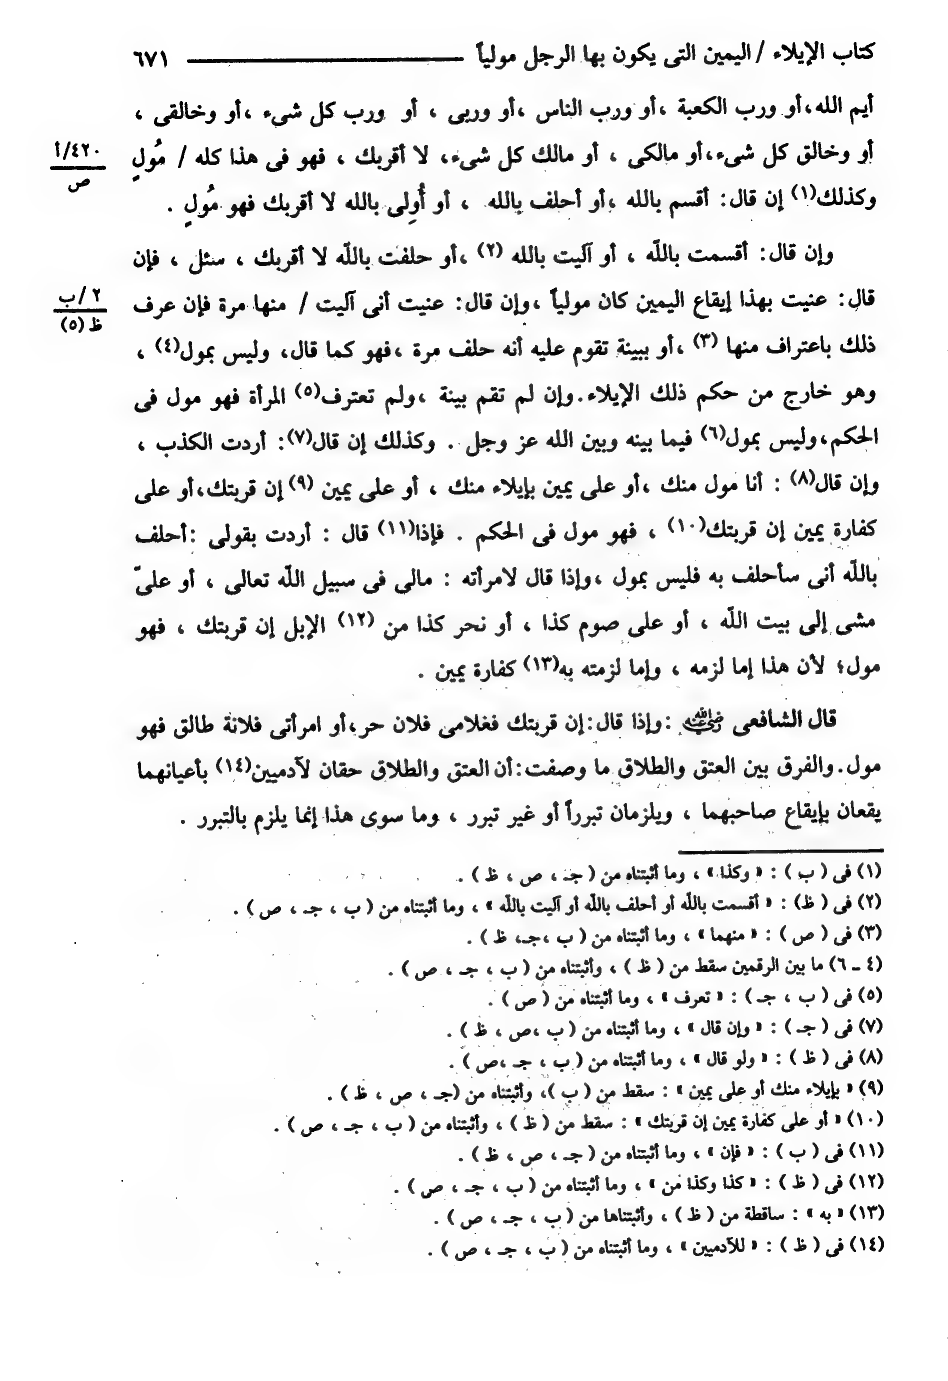 كتاب الإيلاء / اليمين التى يكون بها الرجل مولياً ٦٧١
أيم الله،أو ورب الكعبة ،أو ورب الناس ،أو وربى ، أو ورب كل شىء ،أو وخالقى ،
أو وخالق كل شىء،أو مالكى ، أو مالك كل شىء، لا أقربك ، فهو فى هذا كله / مُولٍ
٤٢٠/أ
ص
وكذلك(١) إن قال: أقسم بالله ،أو أحلف بالله ، أو أُولِى بالله لا أقربك فهو مُولٍ .
وإن قال: أقسمت باللّه ، أو آليت بالله (٢) ،أو حلفت باللّه لا أقربك ، سئل ، فإن
قال: عنيت بهذا إيقاع اليمين كان مولياً ،وإن قال: عنيت أنى آليت / منها مرة فإن عرف
٢ /ب
ظ (٥)
ذلك باعتراف منها (٣) ،أو ببينة تقوم عليه أنه حلف مرة ،فهو كما قال، وليس بمول(٤) ،
وهو خارج من حكم ذلك الإيلاء.وإن لم تقم بينة ،ولم تعترف(٥) المرأة فهو مول فى
الحكم،وليس بمول(٦) فيما بينه وبين الله عز وجل . وكذلك إن قال(٧): أردت الكذب ،
وإن قال(٨) : أنا مول منك ،أو على يمين بإيلاء منك ، أو على يمين (٩) إن قربتك،أو على
كفارة يمين إن قربتك(١٠) ، فهو مول فى الحكم . فإذا(١١) قال : أردت بقولى :أحلف
باللّه أنى سأحلف به فليس بمول ،وإذا قال لامرأته : مالى فى سبيل اللّه تعالى ، أو علىّ
مشى إلى بيت اللّه ، أو على صوم كذا ، أو نحر كذا من (١٢) الإبل إن قربتك ، فهو
مول؛ لأن هذا إما لزمه ، وإما لزمته به(١٣) كفارة يمين .
قال الشافعى رَضِيَ اللهُ عَنْهُ :وإذا قال:إن قربتك فغلامى فلان حر،أو امرأتى فلانة طالق فهو
مول.والفرق بين العتق والطلاق ما وصفت:أن العتق والطلاق حقان لآدميين(١٤) بأعيانهما
يقعان بإيقاع صاحبهما ، ويلزمان تبرراً أو غير تبرر ، وما سوى هذا إنما يلزم بالتبرر .
(١) فى ( ب ) : « وكذا » ، وما أثبتناه من ( جـ ، ص ، ظ ) .
(٢) فى ( ظ) : « أقسمت باللّه أو أحلف باللّه أو آليت باللّه » ، وما أثبتناه من ( ب ، جـ ، ص ) .
(٣) فى ( ص ) : « منهما » ، وما أثبتناه من ( ب ،جـ، ظ ) .
(٤ ـ ٦) ما بين الرقمين سقط من ( ظ ) ، وأثبتناه من ( ب ، جـ ، ص ) .
(٥) فى ( ب ، جـ ) : « تعرف » ، وما أثبتناه من ( ص ) .
(٧) فى ( جـ ) : « وإن قال » ، وما أثبتناه من ( ب ،ص ، ظ ) .
(٨) فى ( ظ ) : « ولو قال » ، وما أثبتناه من ( ب ، جـ ،ص ) .
(٩) « بإيلاء منك أو على يمين » : سقط من ( ب )، وأثبتناه من (جـ ، ص ، ظ ) .
(١٠) « أو على كفارة يمين إن قربتك » : سقط من ( ظ ) ، وأثبتناه من ( ب ، جـ ، ص ) .
(١١) فى ( ب ) : « فإن » ، وما أثبتناه من ( جـ ، ص ، ظ ) .
(١٢) فى ( ظ ) : « كذا وكذا من » ، وما أثبتناه من ( ب ، جـ ، ص ) .
(١٣) « به » : ساقطة من ( ظ ) ، وأثبتناها من ( ب ، جـ ، ص ) .
(١٤) فى ( ظ ) : « للآدميين » ، وما أثبتناه من ( ب ، جـ ، ص ) .